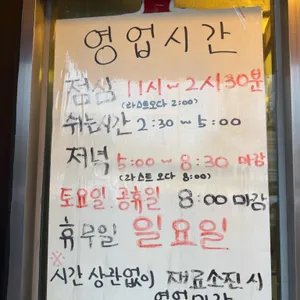 영업시간
점심 11시~2시30분
(라스트오다 2:00)
쉬는시간 2:30~5:00
저녁 5:00~8:30 마감
(라스트 오다 8:00)
토요일.공휴일 8:00 마감
휴무일 일요일
※
시간 상관없이 재료소진 시
영업마감